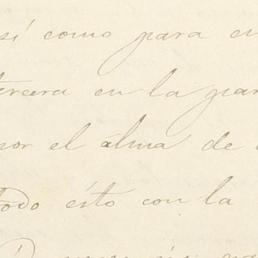 sí como para en
tercera en la par
por el alma de
todo ésto con la